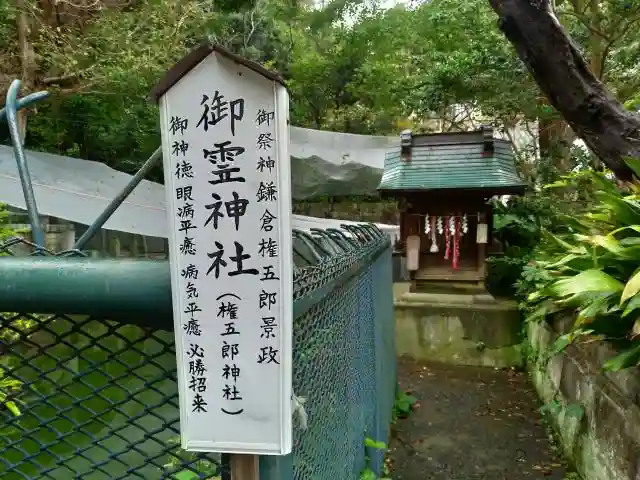 御祭神 鎌倉権五郎景政
御霊神社（権五郎神社）
御神徳 眼病平癒 病気平癒 必勝招来